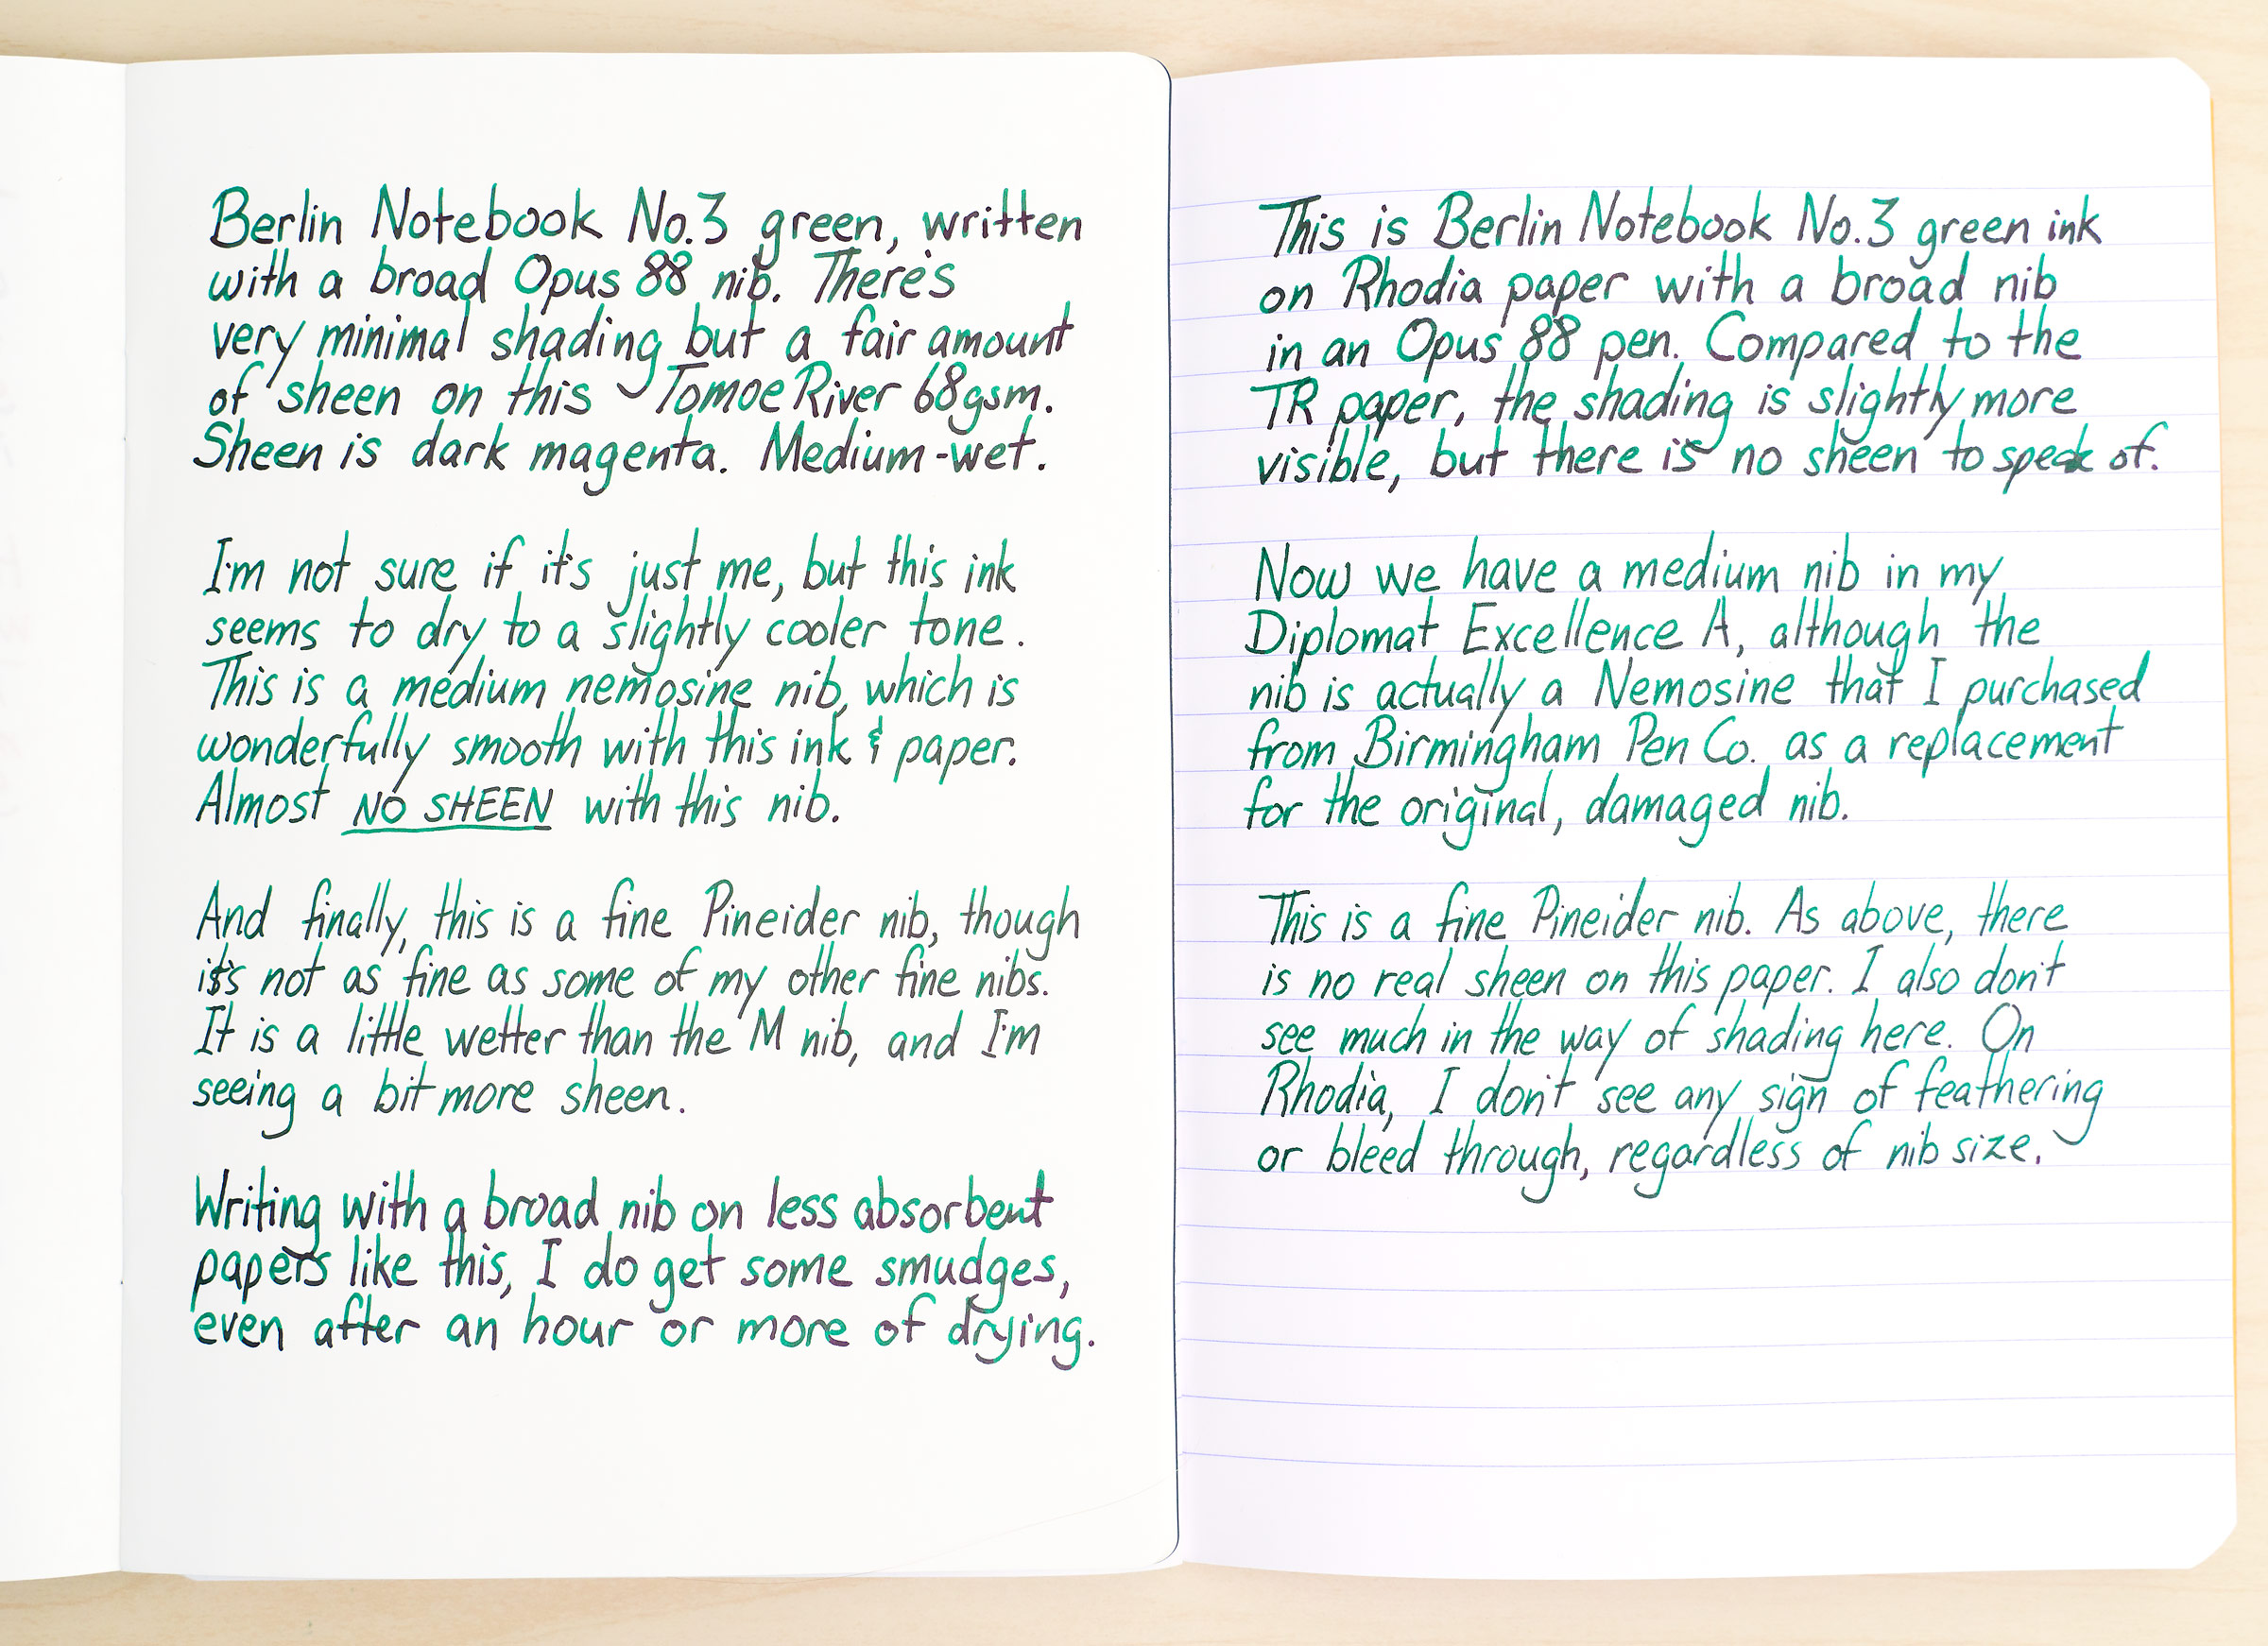 Berlin Notebook No.3 green, written
with a broad Opus 88 nib. There's
very minimal shading but a fair amount
of sheen on this Tomoe River 68gsm.
Sheen is dark magenta. Medium-wet.
I'm not sure if it's just me, but this ink
seems to dry to a slightly cooler tone.
This is a medium nemosine nib, which is
wonderfully smooth with this ink & paper.
Almost NO SHEEN with this nib.
And finally, this is a fine Pineider nib, though
it's not as fine as some of my other fine nibs.
It is a little wetter than the M nib, and I'm
seeing a bit more sheen.
Writing with a broad nib on less absorbent
papers like this, I do get some smudges,
even after an hour or more of drying.
This is Berlin Notebook No.3 green ink
on Rhodia paper with a broad nib
in an Opus 88 pen. Compared to the
TR paper, the shading is slightly more
visible, but there is no sheen to speak of.
Now we have a medium nib in my
Diplomat Excellence A, although the
nib is actually a Nemosine that I purchased
from Birmingham Pen Co. as a replacement
for the original, damaged nib.
This is a fine Pineider nib. As above, there
is no real sheen on this paper. I also don't
see much in the way of shading here. On
Rhodia, I don't see any sign of feathering
or bleed through, regardless of nib size.